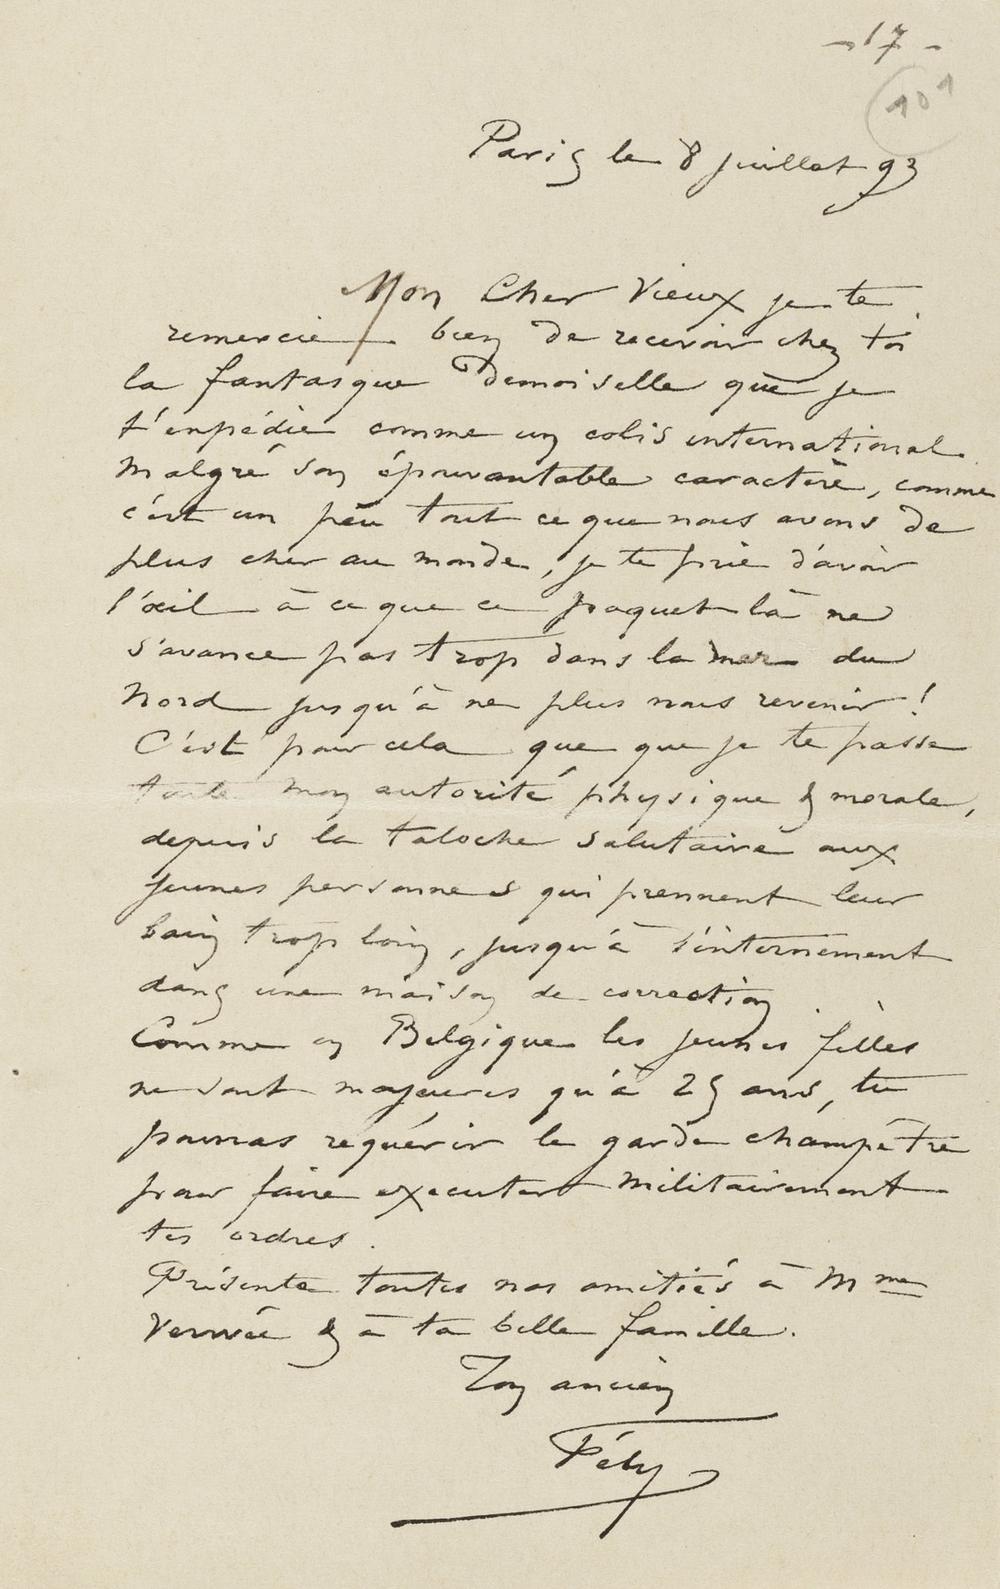 - 17 -
101
Paris le 8 juillet 93
Mon Cher Vieux je te
remercie bien de recevoir chez toi
la fantasque Demoiselle que je
t'expédie comme un colis international.
Malgré son épouvantable caractère, comme
c'est un peu tout ce que nous avons de
plus cher au monde, je te prie d'avoir
l'œil à ce que ce paquet là ne
s'avance pas trop dans la mer du
Nord jusqu'à ne plus nous revenir !
C'est pour cela que que je te passe
toute mon autorité physique & morale,
depuis la taloche salutaire aux
jeunes personnes qui prennent leur
bain trop loin, jusqu'à l'internement
dans une maison de correction.
Comme en Belgique les jeunes filles
ne sont majeures qu'à 25 ans, tu
pourras requérir le garde champêtre
pour faire executer militairement
tes ordres.
Présente toutes nos amitiés à Mme
Verwée & à ta belle famille.
Ton ancien
Fély